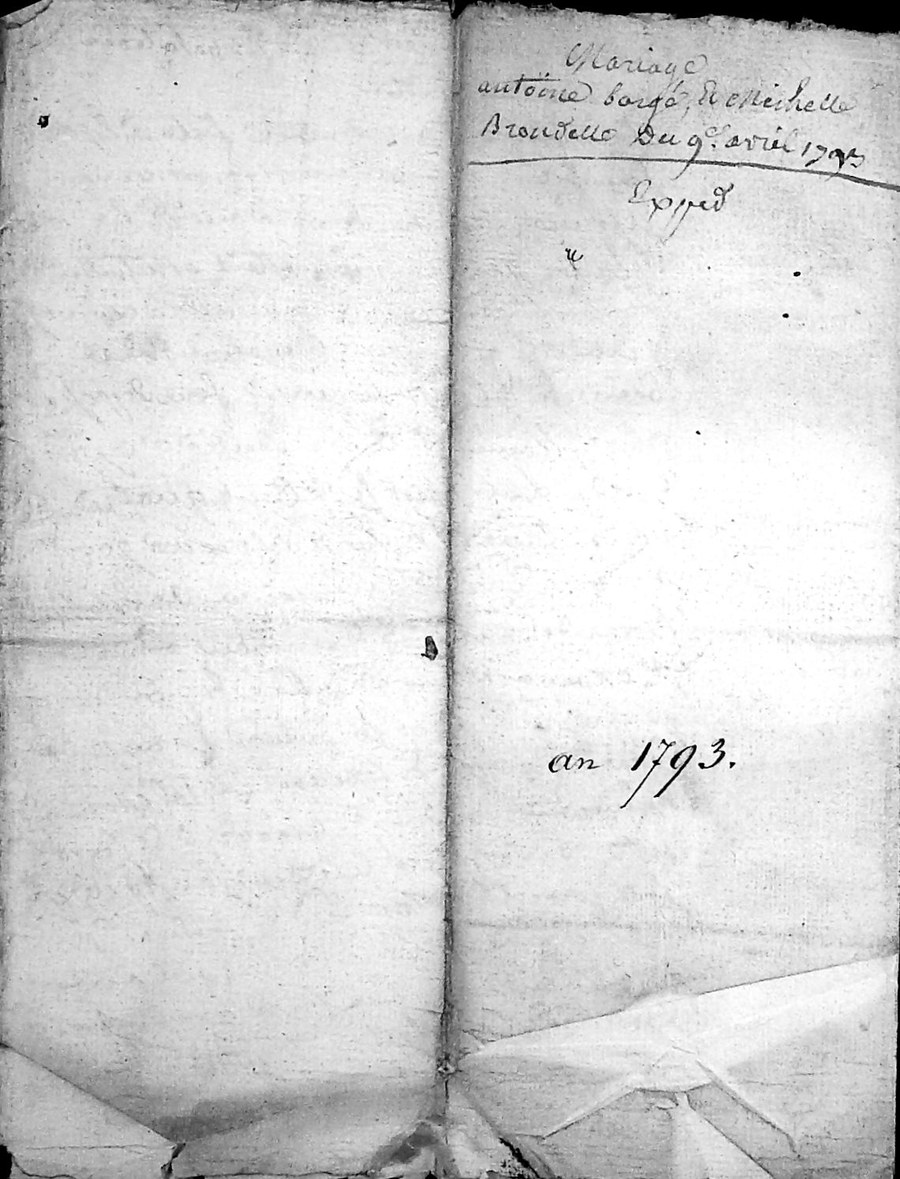 Mariage
antoine borgé, Et Michelle
Brondelle Du 9e. avril 1793
Exped
an 1793.